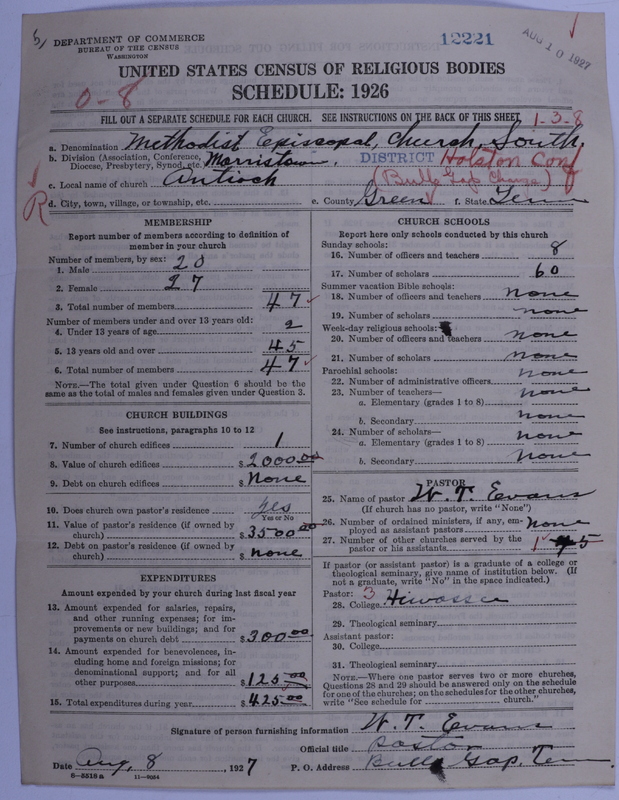 DEPARTMENT OF COMMERCE
BUREAU OF THE CENSUS
WASHINGTON
12221
AUG 10 1927
UNITED STATES CENSUS OF RELIGIOUS BODIES
SCHEDULE: 1926
0-8
FILL OUT A SEPARATE SCHEDULE FOR EACH CHURCH. SEE INSTRUCTIONS ON THE BACK OF THIS SHEET
1-3-8
a. Denomination Methodist Episcopal, Church, South,
b. Division (Association, Conference, Diocese, Presbytery, Synod, etc.) Morristown, DISTRICT Holston Conf
(Bulls Gap Charge)
c. Local name of church Antioch
R
d. City, town, village, or township, etc. e. County Green f. State Tenn
MEMBERSHIP
Report number of members according to definition of
member in your church
Number of members, by sex:
1. Male 20
2. Female 27
3. Total number of members 47
Number of members under and over 13 years old:
4. Under 13 years of age 2
5. 13 years old and over 45
6. Total number of members 47
NOTE.—The total given under Question 6 should be
same as the total of males and females given under Question 3.
CHURCH BUILDINGS
See instructions, paragraphs 10 to 12
7. Number of church edifices 1
8. Value of church edifices $ 2000.00
9. Debt on church edifices $ None
10. Does church own pastor's residence yes
Yes or No
11. Value of pastor's residence (if owned by
church) $ 3500.00
12. Debt on pastor's residence (if owned by
church) $ none
EXPENDITURES
Amount expended by your church during last fiscal year
13. Amount expended for salaries, repairs,
and other running expenses; for im-
provements or new buildings; and for
payments on church debt $ 300.00
14. Amount expended for benevolences, in-
cluding home and foreign missions; for
denominational support; and for all
other purposes $ 125.00
15. Total expenditures during year $ 425.00
CHURCH SCHOOLS
Report here only schools conducted by this church
Sunday schools:
16. Number of officers and teachers 8
17. Number of scholars 60
Summer vacation Bible schools:
18. Number of officers and teachers none
19. Number of scholars none
Week-day religious schools:
20. Number of officers and teachers none
21. Number of scholars none
Parochial schools:
22. Number of administrative officers none
23. Number of teachers—
a. Elementary (grades 1 to 8) none
b. Secondary none
24. Number of scholars—
a. Elementary (grades 1 to 8) none
b. Secondary none
PASTOR
25. Name of pastor W. T. Evans
(If church has no pastor, write "None")
26. Number of ordained ministers, if any, em-
ployed as assistant pastors none
27. Number of other churches served by the
pastor or his assistants 1 5
If pastor (or assistant pastor) is a graduate of a college or
theological seminary, give name of institution below. (If
not a graduate, write "No" in the space indicated.)
Pastor: 3
28. College Hiwassee
29. Theological seminary
Assistant pastor:
30. College
31. Theological seminary
NOTE.—Where one pastor serves two or more churches,
Questions 28 and 29 should be answered only on the schedule
for one of the churches; on the schedules for the other churches,
write "See schedule for church."
Signature of person furnishing information W. T. Evans
Official title pastor
Date Aug, 8, 1927 P. O. Address Bulls Gap, Tenn
8—5518 a 11—9084